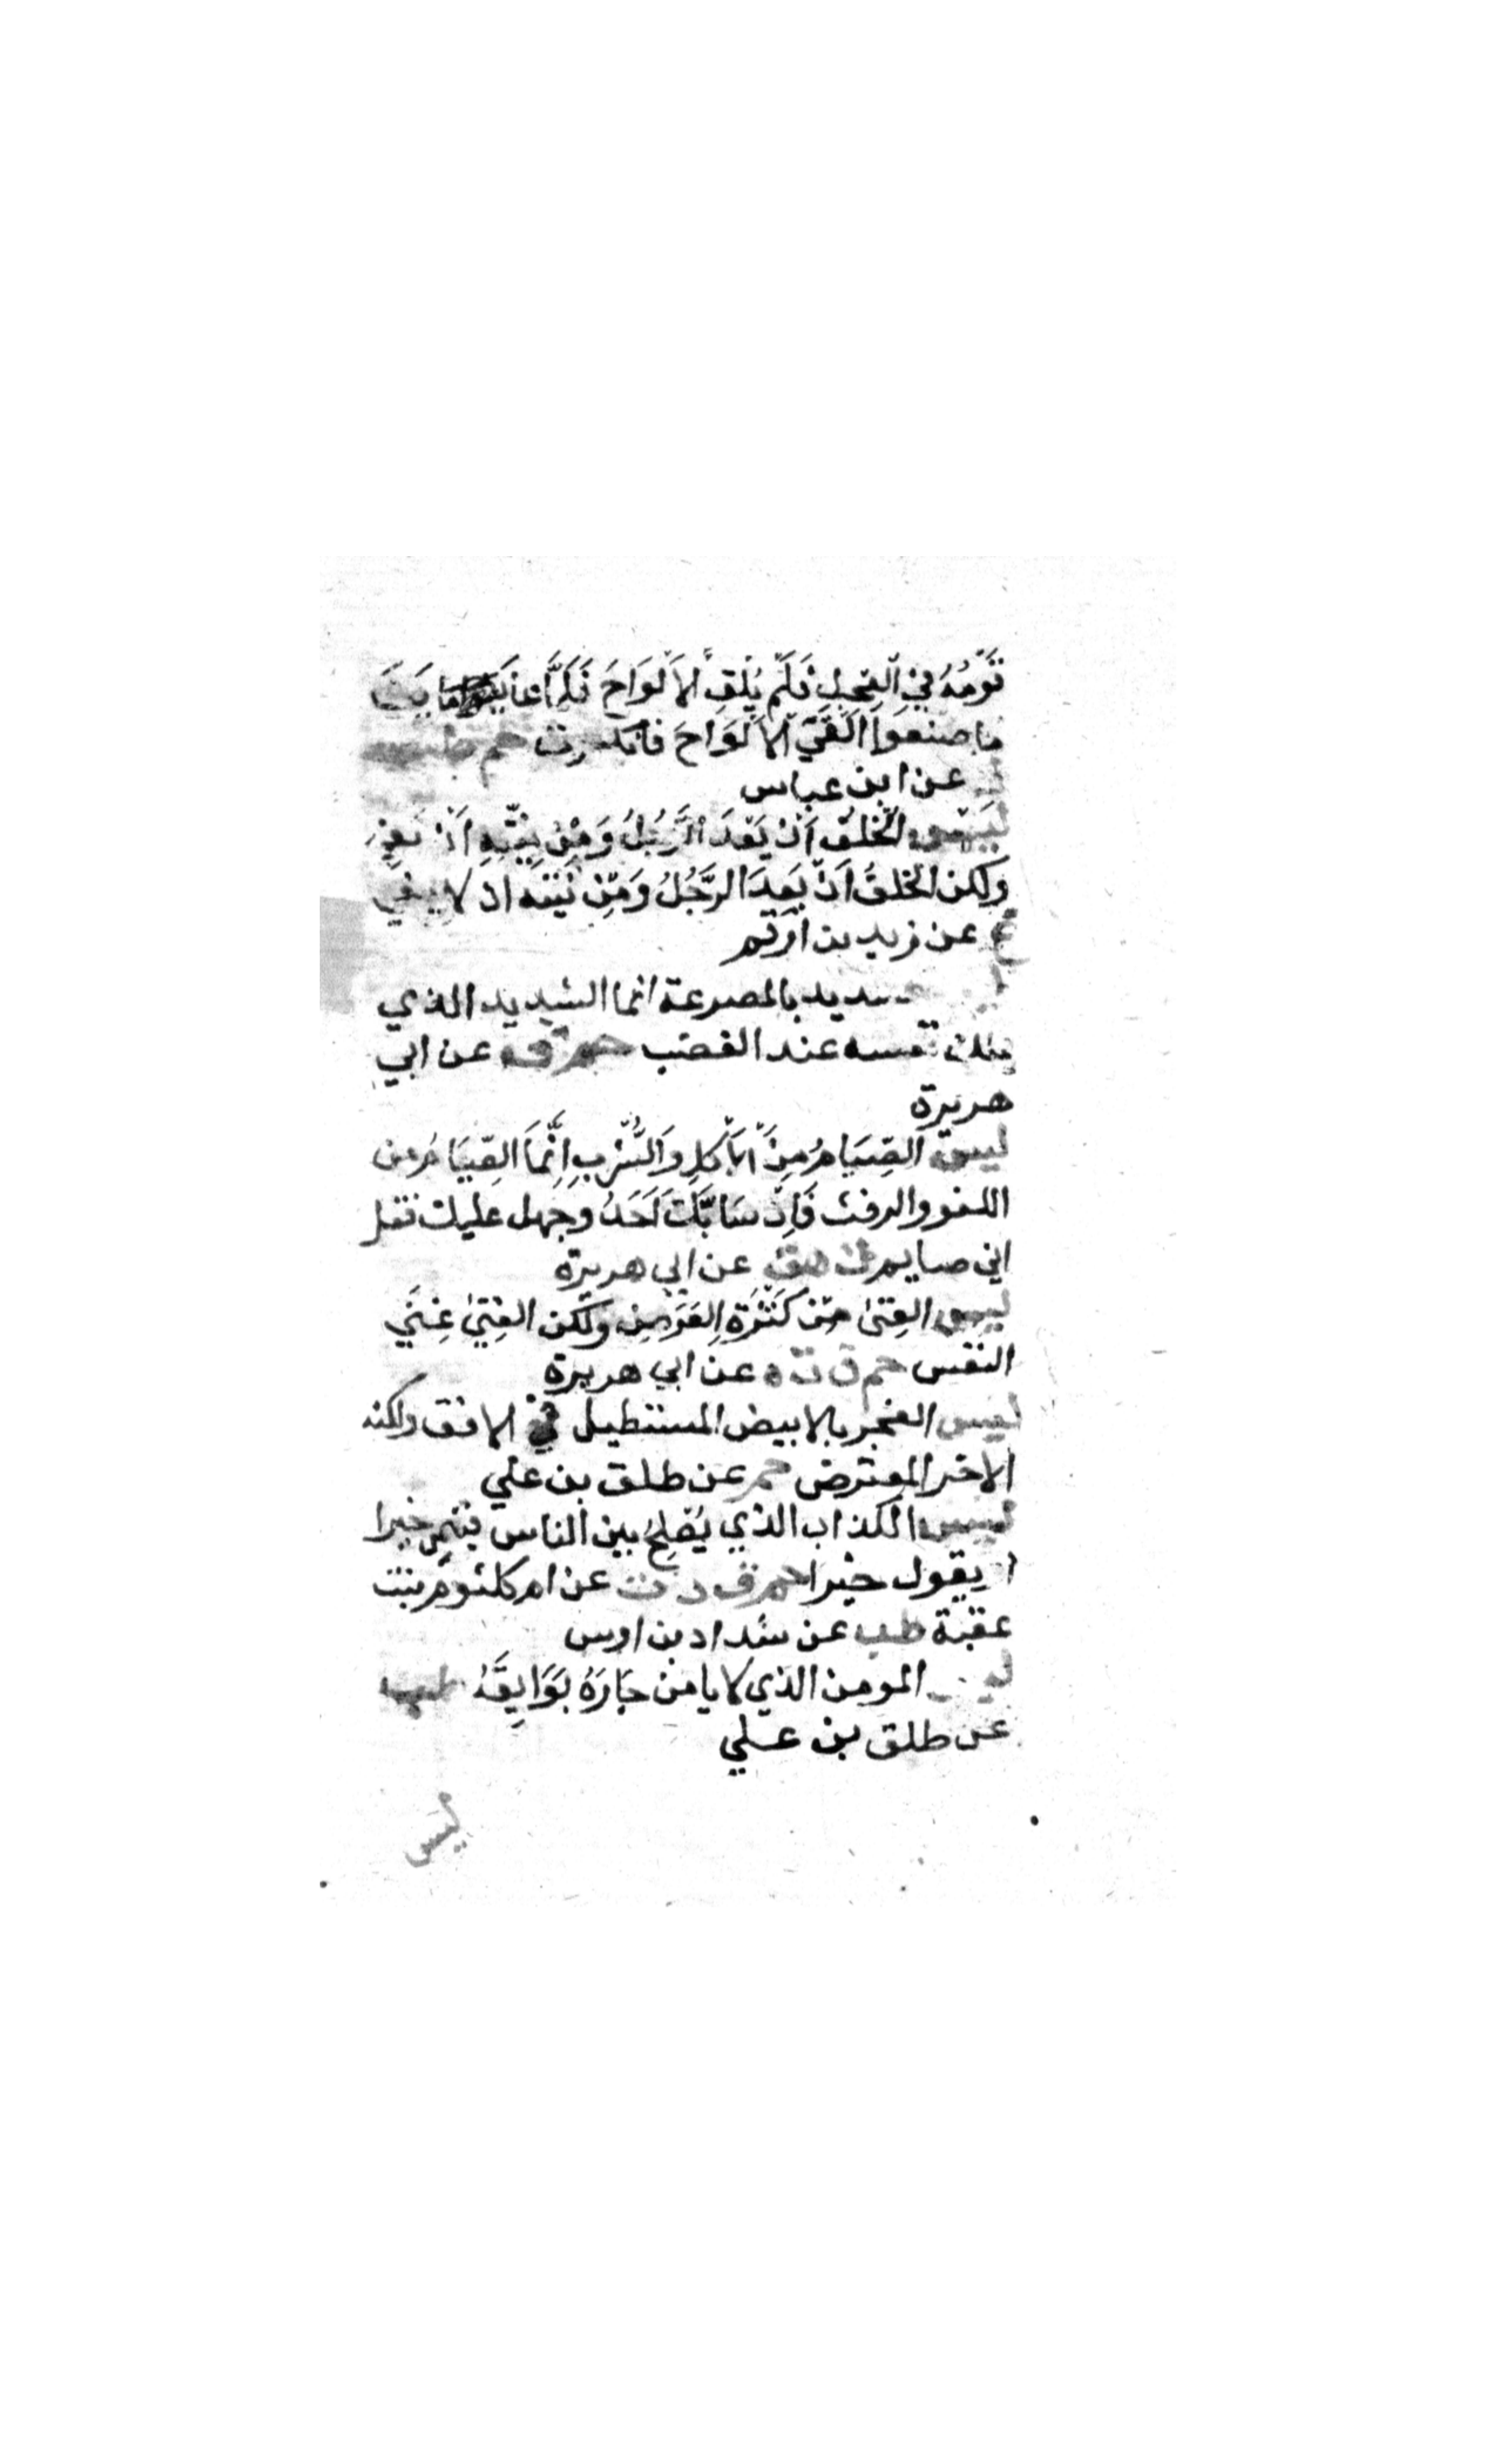 قَوْمُهُ فِي الْعِجْلِ فَلَمْ يُلْقِ الأَلْوَاحَ فَلَمَّا عَايَنَ
ما صنعوا اَلْقَى الأَلْوَاحَ فانكسرت حم طب
عن ابن عباس
لَيْسَ الْخُلْفُ اَنْ يَعِدَ الرَّجُلُ وَمِنْ نِيَّتِهِ اَنْ يَفِيَ
ولكن الخلفُ اَنْ يَعِدَ الرَّجُلُ وَمِنْ نيته ان لا يفي
ع عن زيد بن أرقم
شديد بالصرعة انما الشديد الذي
يملك نفسه عند الغضب حم ق عن ابي
هريرة
ليس الصِيَامُ مِنَ الأَكلِ وَالشُّرْبِ اِنَّمَا الصِّيَامُ من
اللغو والرفث فَاِنْ سَابَّكَ اَحَدٌ وجهل عليك فقل
اني صايم ك هق عن ابي هريرة
ليس الغِنىٰ مِن كَثْرَةِ العَرَضِ ولكن الغِنىٰ غِنَي
النفس حم ق ت ه عن ابي هريرة
ليس الفجر بالابيض المستطيل في الافق ولكنه
الاحمر المعترض حم عن طلق بن علي
ليس الكذاب الذي يُصْلِحُ بين الناس فينمِي خيرا
او يقول خيرا حم ق د ت عن ام كلثوم بنت
عقبة طب عن شداد بن اوس
ليس المومن الذي لا يامن جَارَهُ بَوَايِقَهُ طب
عن طلق بن علي
ليس